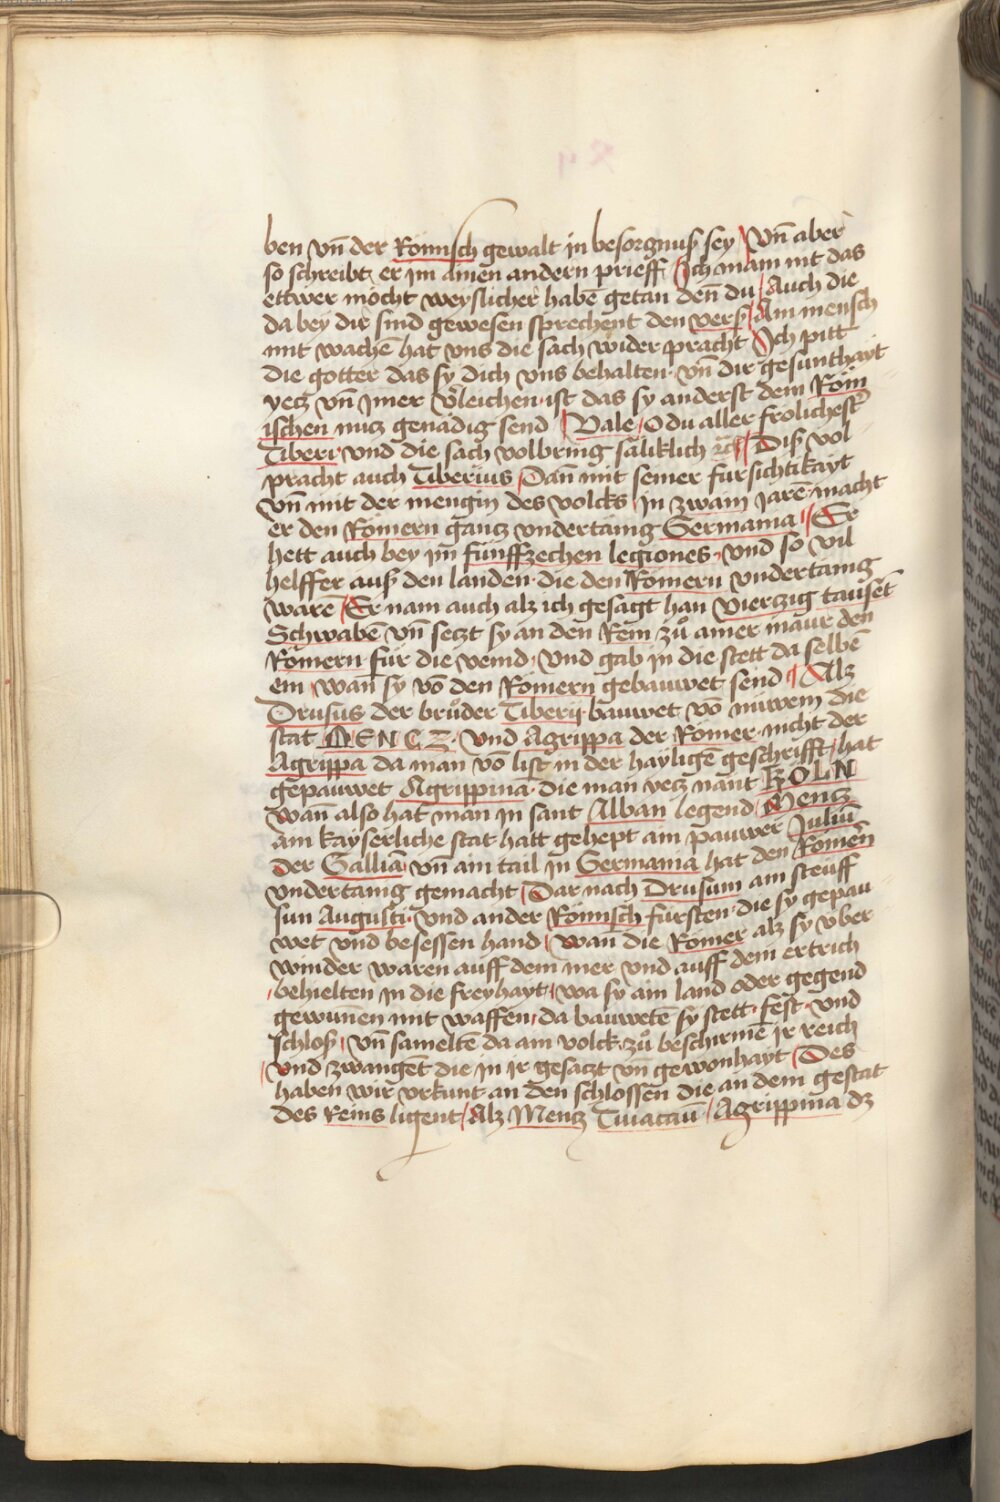 ben vn̄ der Römisch gewalt in besorgnuß sey Vn̄ aber
so schreibt er im ainen andern prieff Ich main nit das
ettwer möcht weyslicher habē getan den̄ du Auch die
da bey dir sind gewesen sprechent den verß Ain mensch
mit wachē hat vns die sach wider pracht Ich pitt
die gotter das sy dich vns behalten vn̄ dir gesunthayt
yecz vn̄ ymer verleichen ist das sy anderst dem Röm
ischen nucz genadig send Vale O du aller frolichester
Tiberi vnd die sach volbring saliklich ꝛc Diß vol
pracht auch Tiberius Dan̄ mit seiner fursichtikayt
vn̄ mit der mengin des volcks in zwain jarē macht
er den Römern gancz vndertänig Germania Er
hett auch bey im funffzechen legiones vnd so vil
helffer auß den landen die den Römern vndertänig
ware Er nam auch alz ich gesagt han viertzig tausēt
Schwabē vn̄ setzt sy an den Rein zů ainer maur den
Römern für die veind vnd gab in die stett da selbē
ein wan̄ sy vō den Römern gebauwet send Alz
Drusus der brůder Tiberij bauwet vō niuwem die
stat MENCZ vnd Agrippa der Römer nicht der
Agrippa da man vō lißt in der hayligē geschrifft hat
gepauwet Agrippina die man yecz nant KOLN
wan̄ also hat man in sant Alban legend Mencz
ain kayserliche stat hatt gehept ain pauwer Juliū
der Gallia vn̄ ain tail in Germania hat den Römern
vndertänig gemacht Dar nach Drusum ain steuff
sun Augusti vnd ander Römisch fürsten die sy gepau
wet vnd besessen hand wan̄ die Römer alz sy vber
winder waren auff dem mer vnd auff dem ertrich
behielten in die freyhayt wa sy ain land oder gegend
gewunnen mit waffen da bauwetē sy stett fest vnd
schloß vn̄ sameltē da ain volck zů beschirmē jr reich
vnd zwangēt die in jr gesaczt vn̄ gewonhayt Des
haben wir vrkunt an den schlossen die an dem gestat
des Reins ligent Alz Mencz Agrippina dz